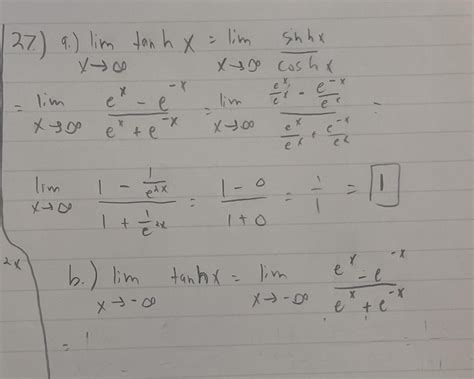 27.) a.) lim x→∞ tanh x = lim x→∞ sinhx / coshx
= lim x→∞ (e^x - e^-x) / (e^x + e^-x) = lim x→∞ (e^x/e^x - e^-x/e^x) / (e^x/e^x + e^-x/e^x) =
lim x→∞ (1 - 1/e^2x) / (1 + 1/e^2x) = (1-0) / (1+0) = 1/1 = 1
2x
b.) lim x→-∞ tanhx = lim x→-∞ (e^x - e^-x) / (e^x + e^-x)
=